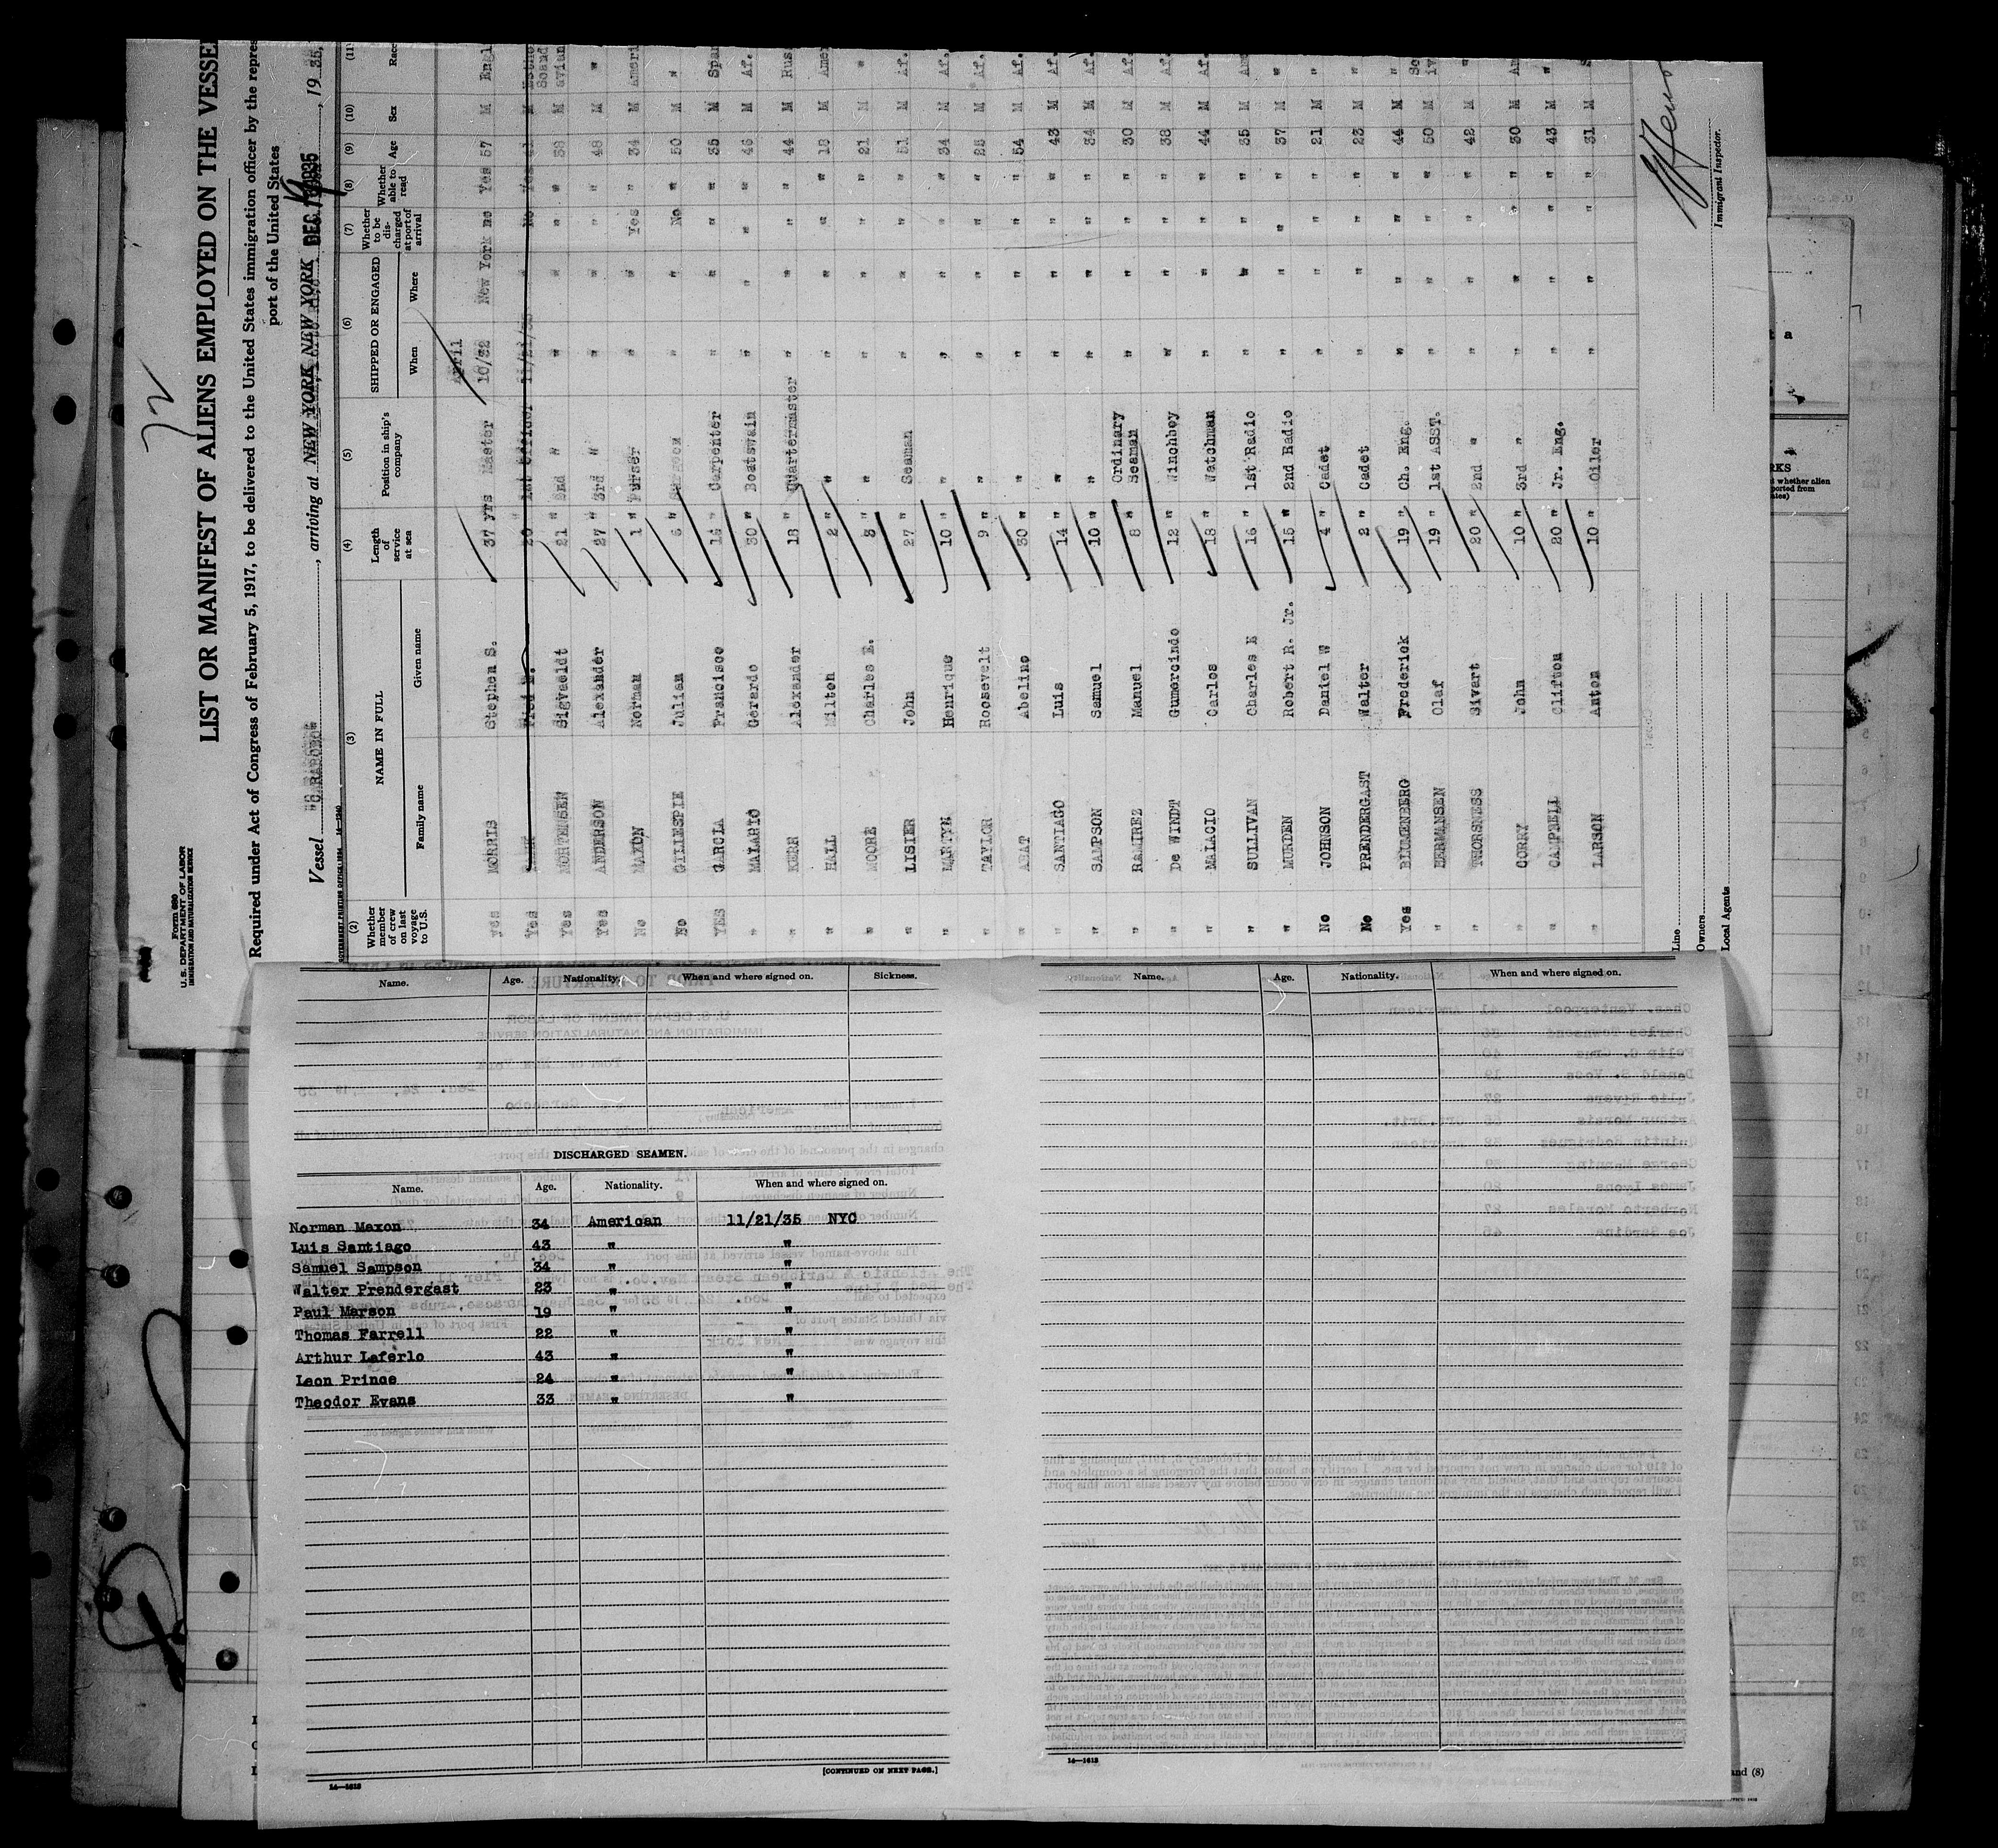 72
Form 680
U.S. DEPARTMENT OF LABOR
IMMIGRATION AND NATURALIZATION SERVICE
LIST OR MANIFEST OF ALIENS EMPLOYED ON THE VESSE
Required under Act of Congress of February 5, 1917, to be delivered to the United States immigration officer by the repres
port of the United States
Vessel "CARABOBO", arriving at NEW YORK NEW YORK DEC 19 1935, 19 35,
(2) (3) (4) (5) (6) (7) (8) (9) (10) (11)
Whether member of crew on last voyage to U.S. NAME IN FULL Length of service at sea Position in ship's company SHIPPED OR ENGAGED Whether to be discharged at port of arrival Whether able to read Age Sex Race
Family name Given name When Where
April
yes MORRIS Stephen S. 37 yrs Master 10/32 New York no Yes 57 M Engl
Yes Fred 20 " 1st Officer 11/21/35 " No Yes 41 M
Yes MORTENSEN Sigvaeldt 21 " 2nd " " " " " 38 M Scand avian
Yes ANDERSON Alexander 27 " 3rd " " " " " 48 M "
No MAXON Norman 1 " Purser " " Yes " 34 M Ameri
No GILLESPIE Julian 6 " " " No " 50 M "
YES GARCIA Francisco 14 " Carpenter " " " " 35 M Spa
" MALARIO Gerardo 30 " Boatswain " " " " 46 M Af.
" KERR Alexander 18 " Quartermaster " " " " 44 M Rus
" HALL Milton 2 " " " " " " 18 M Amer
" MOORE Charles E. 3 " " " " " " 21 M "
" LISIER John 27 " Seaman " " " " 51 M Af.
" MARTYN Henrique 10 " " " " " " 34 M Af.
" TAYLOR Roosevelt 9 " " " " " " 25 M Af.
" ABAT Abelino 30 " " " " " " 54 M Af
" SANTIAGO Luis 14 " " " " " " 43 M Af
" SAMPSON Samuel 10 " " " " " " 34 M Af
" RAMIREZ Manuel 8 " Ordinary Seaman " " " " 30 M Af
" De WINDT Gumercindo 12 " Winchboy " " " " 38 M Af
" MALACIO Carlos 18 " Watchman " " " " 44 M Af
" SULLIVAN Charles E 16 " 1st Radio " " " " 35 M Am
" MURDEN Robert R. Jr. 15 " 2nd Radio " " " " 37 M "
No JOHNSON Daniel W 4 " Cadet " " " " 21 M "
No PRENDERGAST Walter 2 " Cadet " " " " 23 M "
Yes BLUMENBERG Frederick 19 " Ch. Eng. " " " " 44 M "
" HERMANSEN Olaf 19 " 1st ASST. " " " " 50 M Sc iv
" THORSNESS Sivart 20 " 2nd " " " " " 42 M "
" CORRY John 10 " 3rd " " " " " 30 M Am
" CAMPBELL Clifton 20 " Jr. Eng. " " " " 43 M "
" LARSON Anton 10 " Oiler " " " " 31 M S
Line
Owners
Local Agents
Immigrant Inspector.
Name. Age. Nationality. When and where signed on. Sickness.
DISCHARGED SEAMEN.
Name. Age. Nationality. When and where signed on.
Norman Maxon 34 American 11/21/35 NYC
Luis Santiago 43 " "
Samuel Sampson 34 " "
Walter Prendergast 23 " "
Paul Marson 19 " "
Thomas Farrell 22 " "
Arthur Laferlo 43 " "
Leon Prince 24 " "
Theodor Evans 33 " "
14—1613
[CONTINUED ON NEXT PAGE.]
Name. Age. Nationality. When and where signed on.
14—1613
and (8)